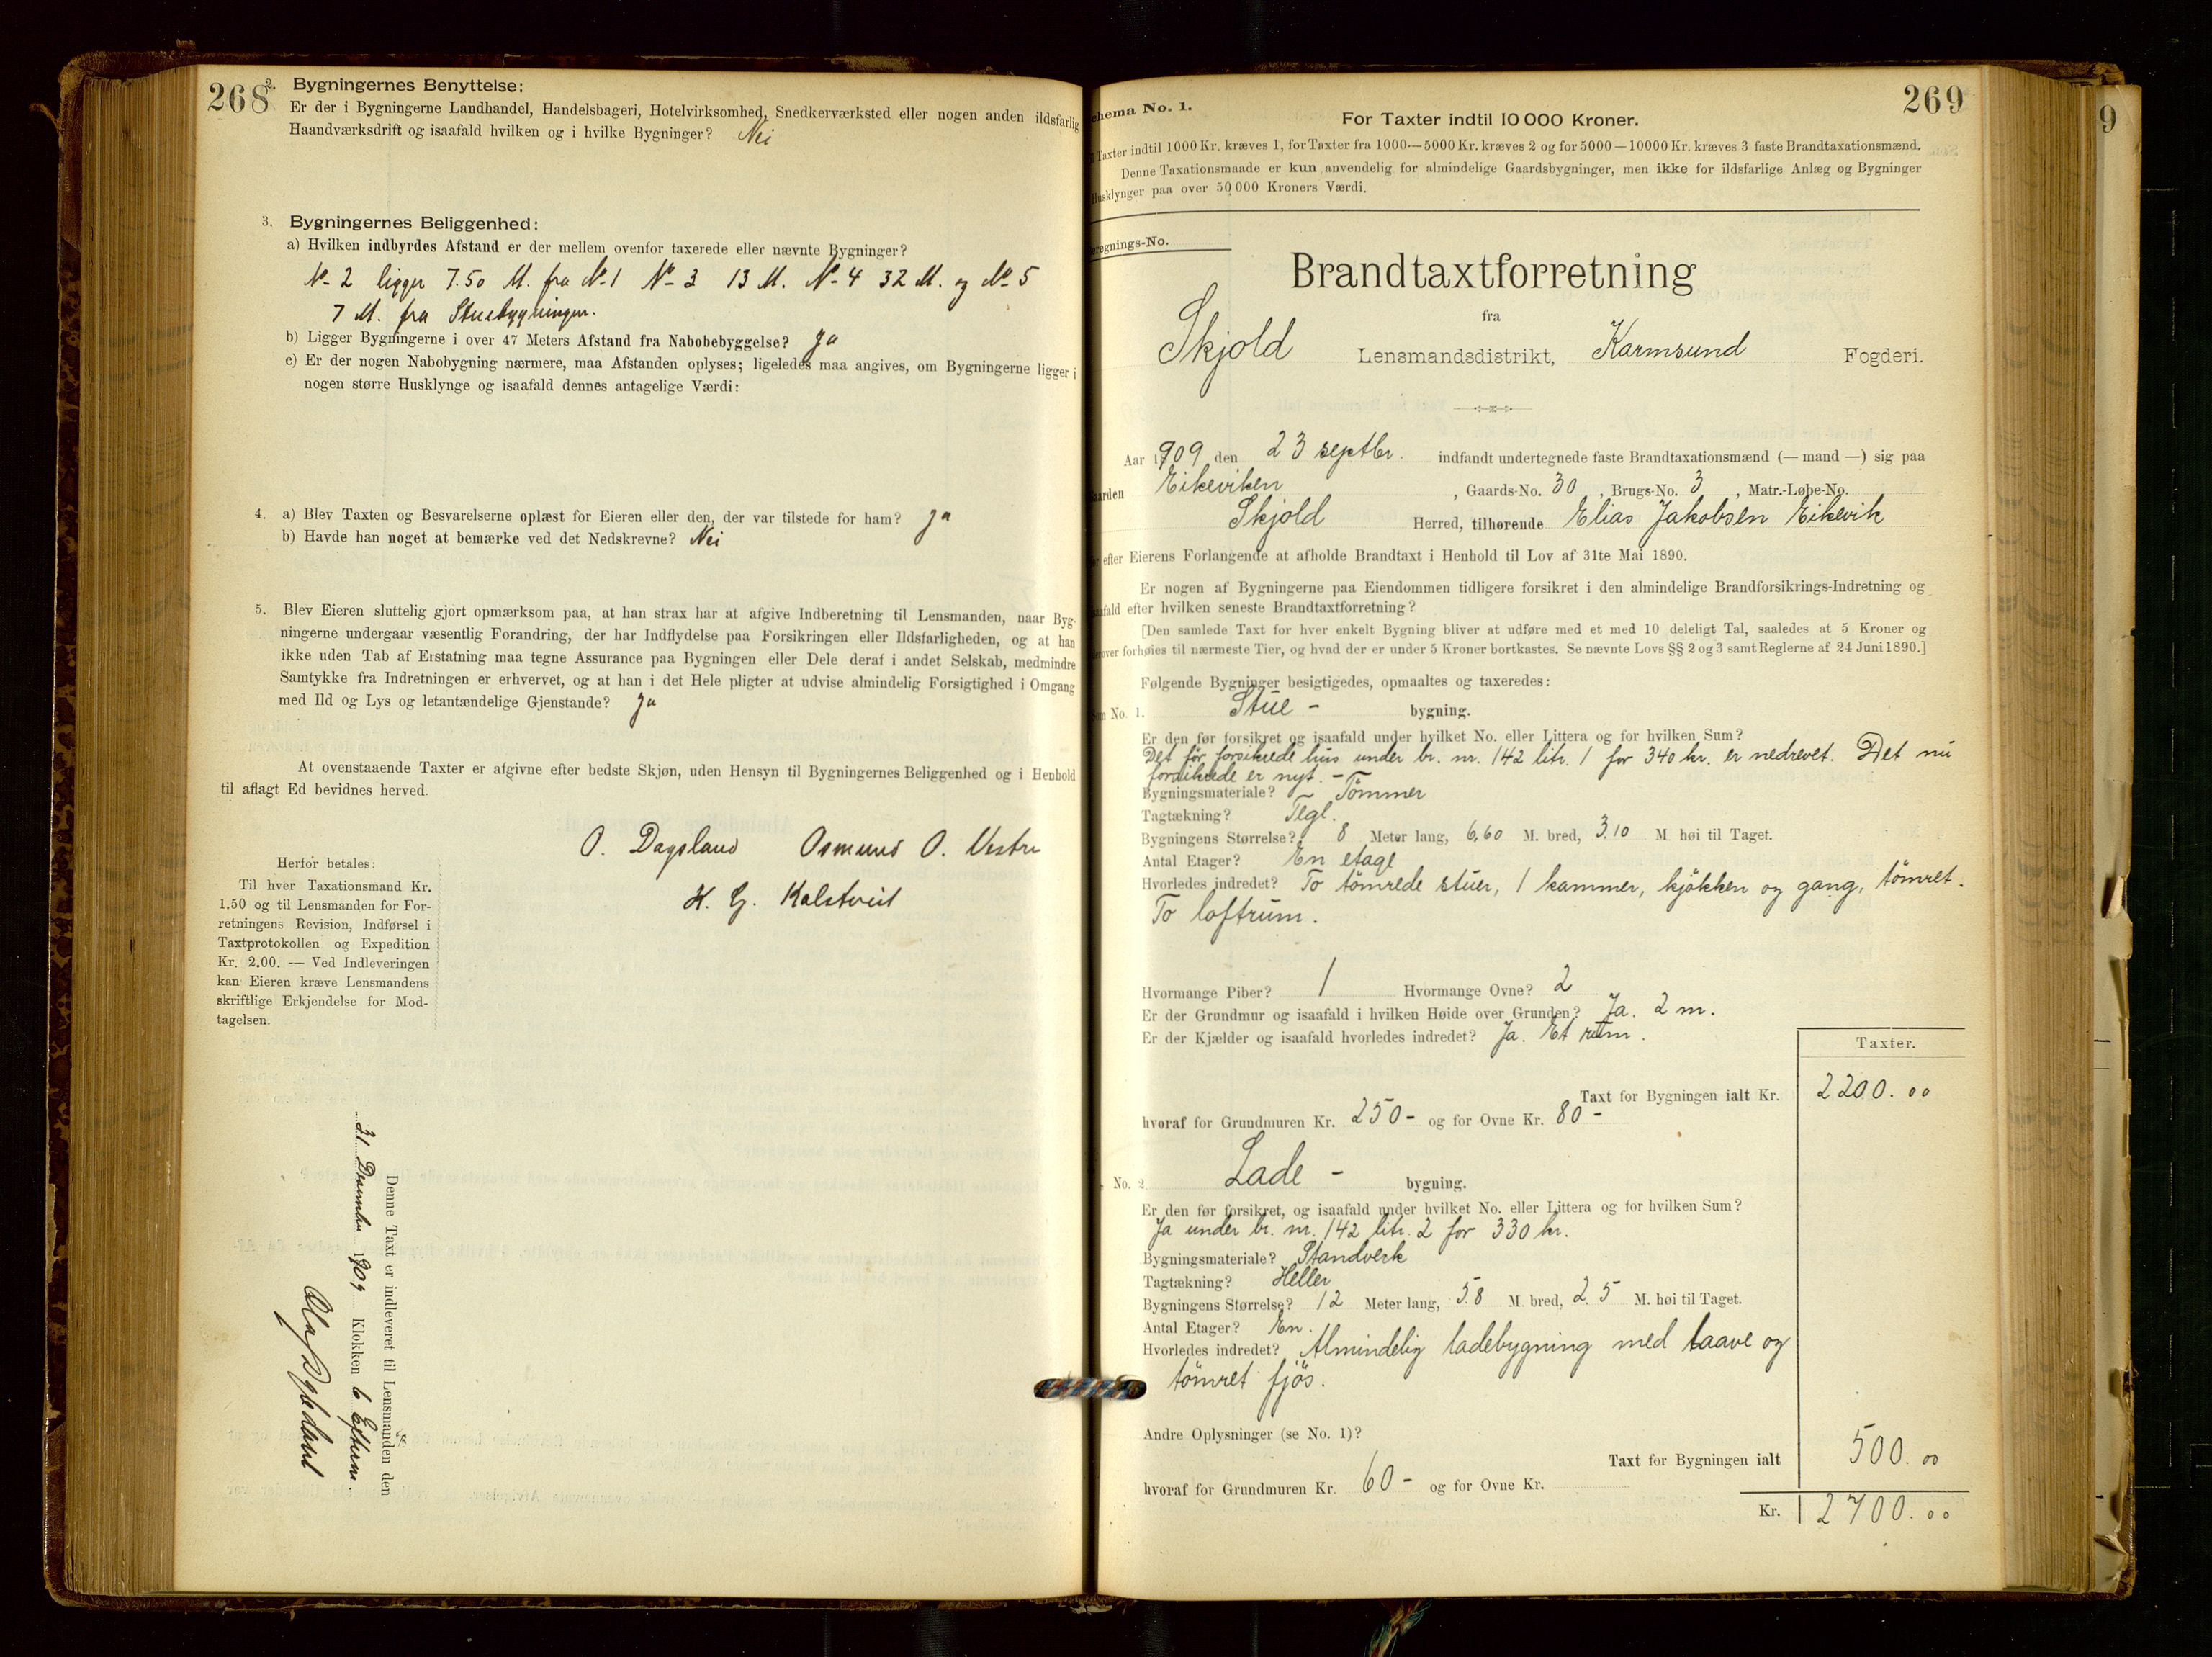 268
2. Bygningernes Benyttelse:
Er der i Bygningerne Landhandel, Handelsbageri, Hotelvirksomhed, Snedkerværksted eller nogen anden ildsfarlig
Haandværksdrift og isaafald hvilken og i hvilke Bygninger? Nei
3. Bygningernes Beliggenhed:
a) Hvilken indbyrdes Afstand er der mellem ovenfor taxerede eller nævnte Bygninger?
No 2 ligger 7.50 M. fra No 1 No 3 13 M. No 4 32 M. og No 5
7 M. fra Stuebygningen.
b) Ligger Bygningerne i over 47 Meters Afstand fra Nabobebyggelse? Ja
c) Er der nogen Nabobygning nærmere, maa Afstanden oplyses; ligeledes maa angives, om Bygningerne ligger i
nogen større Husklynge og isaafald dennes antagelige Værdi:
4. a) Blev Taxten og Besvarelserne oplæst for Eieren eller den, der var tilstede for ham? Ja
b) Havde han noget at bemærke ved det Nedskrevne? Nei
5. Blev Eieren sluttelig gjort opmærksom paa, at han strax har at afgive Indberetning til Lensmanden, naar Byg-
ningerne undergaar væsentlig Forandring, der har Indflydelse paa Forsikringen eller Ildsfarligheden, og at han
ikke uden Tab af Erstatning maa tegne Assurance paa Bygningen eller Dele deraf i andet Selskab, medmindre
Samtykke fra Indretningen er erhvervet, og at han i det Hele pligter at udvise almindelig Forsigtighed i Omgang
med Ild og Lys og letantændelige Gjenstande? Ja
At ovenstaaende Taxter er afgivne efter bedste Skjøn, uden Hensyn til Bygningernes Beliggenhed og i Henhold
til aflagt Ed bevidnes herved.
O. Dagsland Osmund O. Vestre
K. G. Kalstveit
Herfor betales:
Til hver Taxationsmand Kr.
1.50 og til Lensmanden for For-
retningens Revision, Indførsel i
Taxtprotokollen og Expedition
Kr. 2.00. — Ved Indleveringen
kan Eieren kræve Lensmandens
skriftlige Erkjendelse for Mod-
tagelsen.
Denne Taxt er indleveret til Lensmanden den
31 December 1909 Klokken 6 Efterm.
269
Schema No. 1.
For Taxter indtil 10 000 Kroner.
Taxter indtil 1000 Kr. kræves 1, for Taxter fra 1000—5000 Kr. kræves 2 og for 5000—10000 Kr. kræves 3 faste Brandtaxationsmænd.
Denne Taxationsmaade er kun anvendelig for almindelige Gaardsbygninger, men ikke for ildsfarlige Anlæg og Bygninger
Husklynger paa over 50 000 Kroners Værdi.
eregnings-No.
Brandtaxtforretning
fra
Skjold Lensmandsdistrikt, Karmsund Fogderi.
Aar 1909 den 23 septbr. indfandt undertegnede faste Brandtaxationsmænd (— mand —) sig paa
Gaarden Eikeviken, Gaards-No. 30, Brugs-No. 3, Matr.-Løbe-No.
Skjold Herred, tilhørende Elias Jakobsen Eikevik
for efter Eierens Forlangende at afholde Brandtaxt i Henhold til Lov af 31te Mai 1890.
Er nogen af Bygningerne paa Eiendommen tidligere forsikret i den almindelige Brandforsikrings-Indretning og
isaafald efter hvilken seneste Brandtaxtforretning?
[Den samlede Taxt for hver enkelt Bygning bliver at udføre med et med 10 deleligt Tal, saaledes at 5 Kroner og
derover forhøies til nærmeste Tier, og hvad der er under 5 Kroner bortkastes. Se nævnte Lovs §§ 2 og 3 samt Reglerne af 24 Juni 1890.]
Følgende Bygninger besigtigedes, opmaaltes og taxeredes:
Som No. 1. Stue - bygning.
Er den før forsikret og isaafald under hvilket No. eller Littera og for hvilken Sum?
Det før forsikrede hus under br. nr. 142 litr. 1 for 340 kr. er nedrevet. Det nu
forsikrede er nyt. -
Bygningsmateriale? Tømmer
Tagtækning? Tegl.
Bygningens Størrelse? 8 Meter lang, 6,60 M. bred, 3.10 M. høi til Taget.
Antal Etager? En etage
Hvorledes indredet? To tømrede stuer, 1 kammer, kjøkken og gang, tømret.
To loftrum.
Hvormange Piber? 1 Hvormange Ovne? 2
Er der Grundmur og isaafald i hvilken Høide over Grunden? Ja. 2 m.
Er der Kjælder og isaafald hvorledes indredet? Ja. Et rum.
Taxter.
Taxt for Bygningen ialt Kr. 2200.00
hvoraf for Grundmuren Kr. 250- og for Ovne Kr. 80-
No. 2. Lade - bygning.
Er den før forsikret, og isaafald under hvilket No. eller Littera og for hvilken Sum?
Ja under br. nr. 142 litr. 2 for 330 kr.
Bygningsmateriale? Standverk
Tagtækning? Heller
Bygningens Størrelse? 12 Meter lang, 5.8 M. bred, 2.5 M. høi til Taget.
Antal Etager? En.
Hvorledes indredet? Almindelig ladebygning med laave og
tømret fjøs.
Andre Oplysninger (se No. 1)?
Taxt for Bygningen ialt 500.00
hvoraf for Grundmuren Kr. 60- og for Ovne Kr.
Kr. 2700.00
9